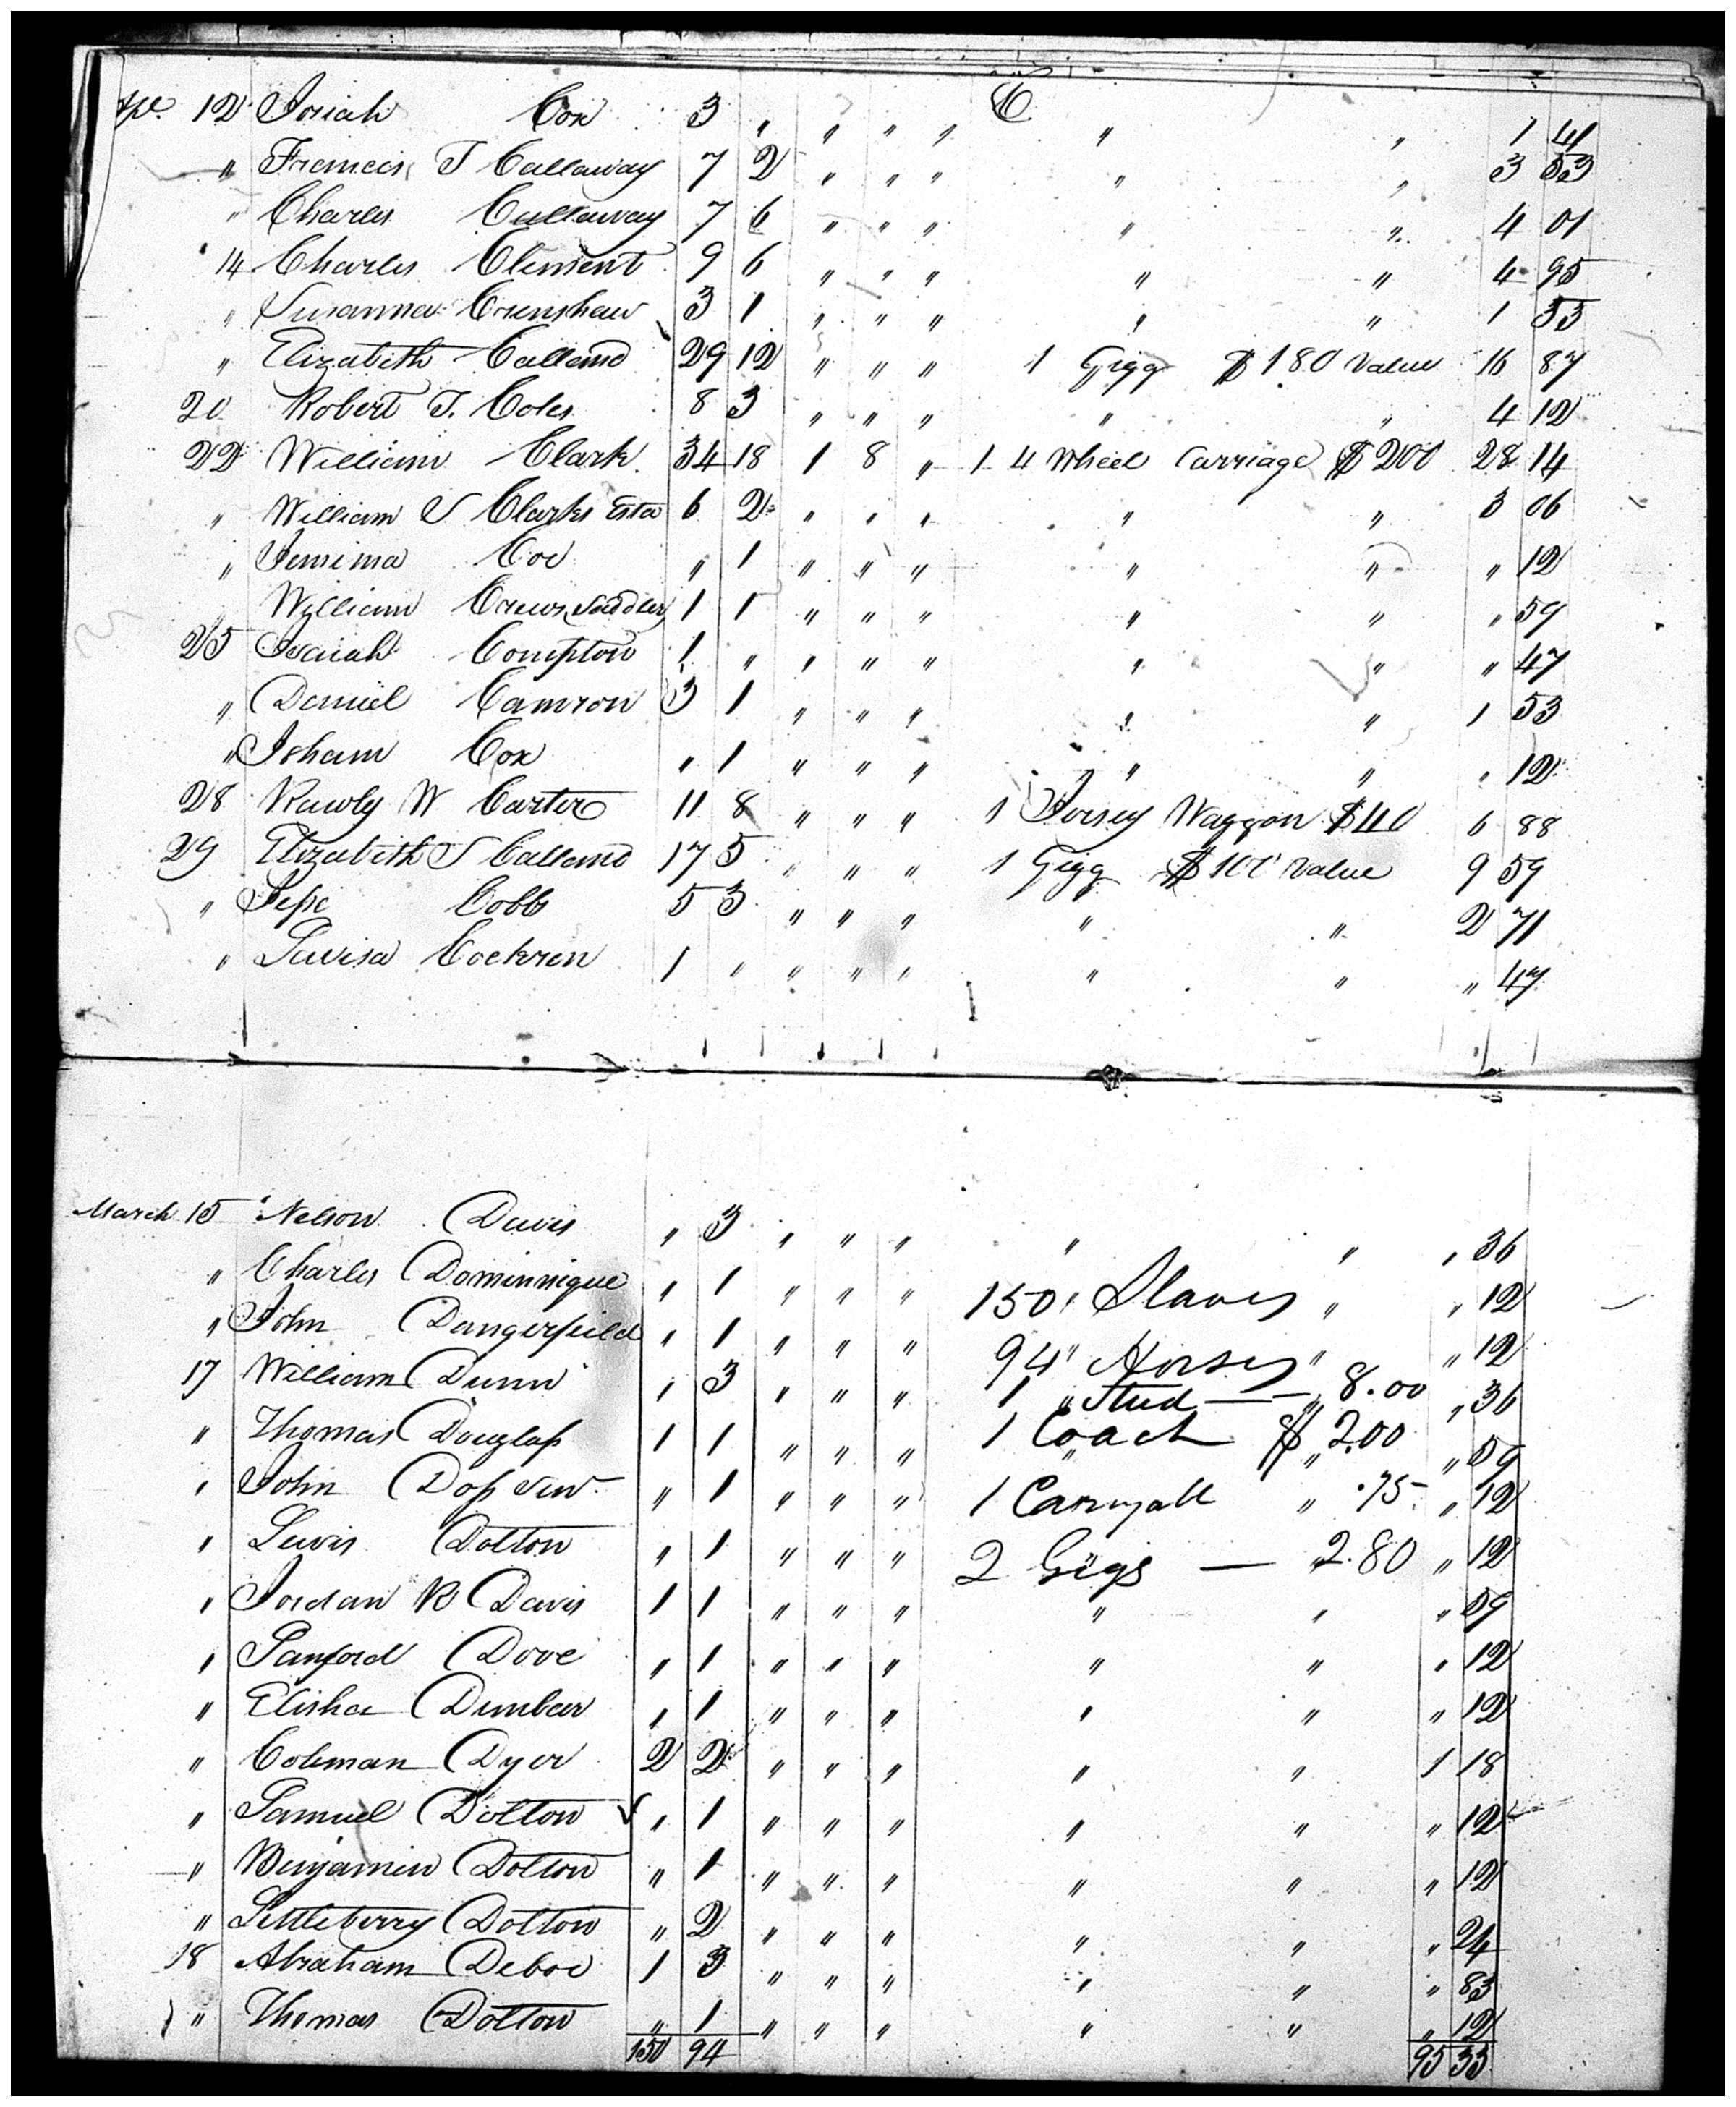 C
Ape. 12 Josiah Cox 3 " " " " " " 1 41
" Francis T Callaway 7 2 " " " " " 3 53
" Charles Callaway 7 6 " " " " " 4 01
14 Charles Clement 9 6 " " " " " 4 95
" Susanna Crenshaw 3 1 " " " " " 1 53
" Elizabeth Calland 29 12 " " " 1 Gigg $180 Value 16 87
20 Robert T. Coles 8 3 " " " " " 4 12
22 William Clark 34 18 1 8 " 1 4 Wheel Carriage $200 28 14
" William S Clarks Esta 6 2 " " " " " 3 06
" Jemima Coe " 1 " " " " " " 12
William Crews Saddler 1 1 " " " " " " 59
25 Isaiah Compton 1 " " " " " " " 47
" Daniel Camron 3 1 " " " " " 1 53
" Isham Cox " 1 " " " " " " 12
28 Rawly W Carter 11 8 " " " 1 Jersey Waggon $40 6 88
29 Elizabeth S Calland 17 5 " " " 1 Gigg $100 Value 9 59
" Jesse Cobbs 5 3 " " " " " 2 71
" Lavisa Cockren 1 " " " " " " " 47
March 15 Nelson Davis " 3 " " " " " " 36
" Charles Dominnique " 1 " " " 150 Slaves " " 12
" John Dangerfield " 1 " " " 94 Horses " " 12
17 William Dunn " 3 " " " 1 " Stud — " 8.00 " 36
" Thomas Douglass 1 1 " " " 1 Coach $ 2.00 " 59
" John Doss Senr " 1 " " " 1 Carryall " .75 " 12
" Lewis Dolton " 1 " " " 2 Gigs — " 2.80 " 12
" Jordan R Davis 1 1 " " " " " " 59
" Sanford Dove " 1 " " " " " " 12
" Elisha Dunbar " 1 " " " " " " 12
" Coleman Dyer 2 2 " " " " " 1 18
" Samuel Dolton " 1 " " " " " " 12
" Benjamin Dolton " 1 " " " " " " 12
" Littleberry Dolton " 2 " " " " " " 24
18 Abraham Deboe 1 3 " " " " " " 83
" Thomas Dolton " 1 " " " " " " 12
150 94 95 33